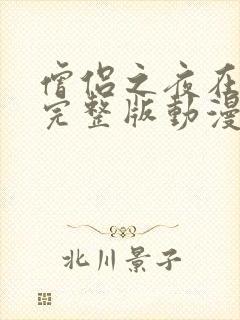 僧侶之夜在
完整版動漫
北川景子